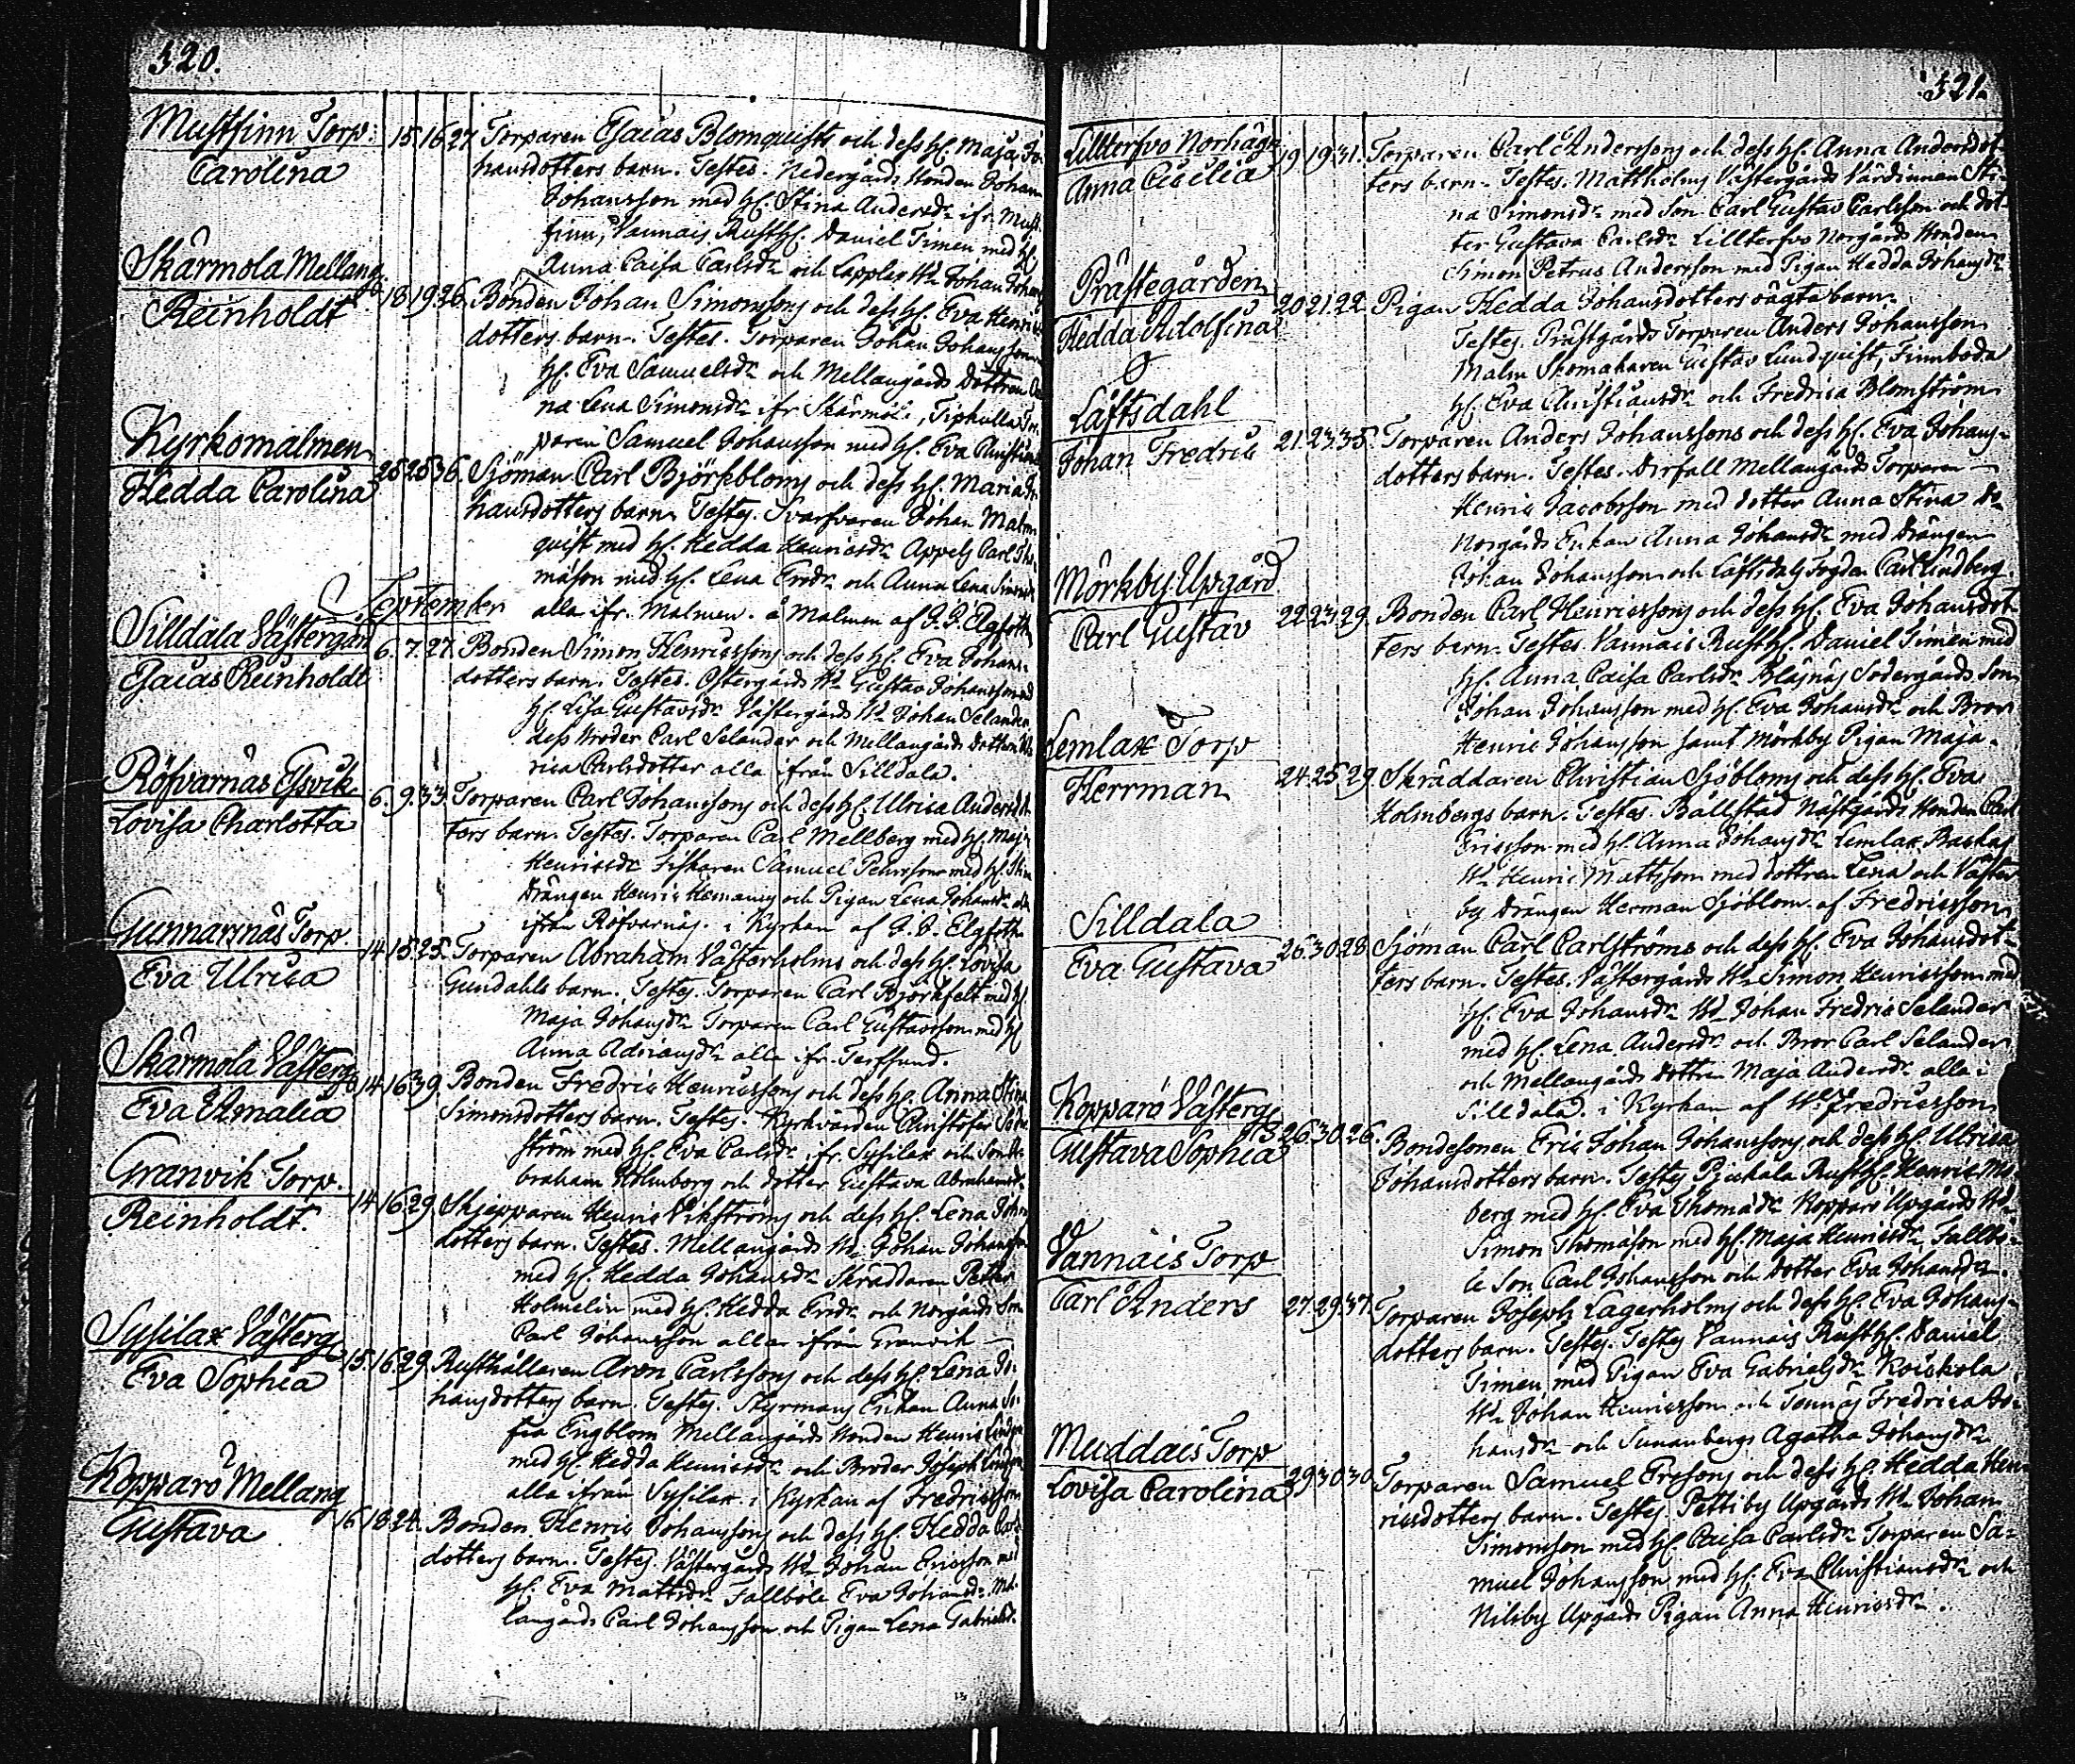 320.
Mustfinn Torp.
Carolina
15. 16. 27. Torparen Esaias Blomquists och dess H. Maja Jo-
hansdotters barn. Testes. Nedergårds Bonden Johan
Johansson med H. Stina Andersdr ifr. Must-
finn, Vannais Rusth. Daniel Timen med H.
Anna Caisa Carlsdr och Lapplex Wd Johan Johans
Skärmola Mellang.
Reinholdt
18. 19. 26. Bonden Johan Simonssons och dess H. Eva Henrics
dotters barn. Testes. Torparen Johan Johansson
H. Eva Samuelsdr och Mellangårds Dottren
na Lena Simonsdr ifr Skärmola, Tiphulla Tor-
paren Samuel Johansson med H. Eva Christians
Kyrkomalmen
Hedda Carolina
25. 25. 36. Sjöman Carl Björkbloms och dess H. Maria Jo-
hansdotters barn. Testes. Svarfvaren Johan Malm-
quist med H. Hedda Henricsdr Carl Tho-
masson med H. Lena Ericsdr och Anna Lena Simonsdr
alla ifr. Malmen. å Malmen af J. J. Elgfoth
September
Silldala Västergård
Esaias Reinholdt
6. 7. 27. Bonden Simon Henricssons och dess H. Eva Johans-
dotters barn. Testes. Östergårds Wd Gustav Johansson med
H. Lisa Gustavsdr Västergårds Wd Johan Selander
dess Broder Carl Selander och Mellangårds Dottren Ul-
rica Carlsdotter alla ifrån Silldala.
Röfvarnäs Esvik
Lovisa Charlotta
6. 9. 33. Torparen Carl Johanssons och dess H. Ulrica Andersdot-
ters barn. Testes. Torparen Carl Mellberg med H. Maja
Henricsdr Fiskaren Samuel Pehrsson med H. Stina
Drängen Henric Hemming och Pigan Lena Johansdr alla
ifrån Röfvarnäs. i Kyrkan af J. J. Elgfoth
Gunnarsnäs Torp.
Eva Ulrica
14. 15. 25. Torparen Abraham Västerholms och dess H. Lovisa
Gundahls barn. Testes. Torparen Carl Björkfelt med H.
Maja Johansdr Torparen Carl Gustavsson med H.
Anna Adriansdr alla ifr. Terfsund.
Skärmola Västerg.
Eva Amalia
14. 16. 39. Bonden Fredric Henricssons och dess H. Anna Stina
Simonsdotters barn. Testes. Kyrkvärden Christofer Söder-
ström med H. Eva Carlsdr ifr. Sysilax och Son A-
braham Holmborg och dotter Gustava Abrahamsdr
Granvik Torp.
Reinholdt.
14. 16. 29. Skjepparen Henric Vikströms och dess H. Lena Johans
dotters barn. Testes. Mellangårds Wd Johan Johansson
med H. Hedda Johansdr Skräddaren Petter
Holmelin med H. Hedda Ericsdr och Norgårds Son
Carl Johansson alla ifrån Granvik
Sysilax Västerg.
Eva Sophia
15. 16. 29. Rusthållaren Aron Carlssons och dess H. Lena Jo-
hansdotters barn. Testes. Styrmans Enkan Anna So-
fia Engblom Mellangårds Bonden Henric
med H. Hedda Henricsdr och Broder Joseph
alla ifrån Sysilax. i Kyrkan af Fredricsson
Kopparö Mellang
Gustava
16. 18. 24. Bonden Henric Johanssons och dess H. Hedda Carls
dotters barn. Testes. Västergårds Wd Johan Ericsson med
H. Eva Mattsdr Fallböle Eva Johansdr. Mel-
langårds Carl Johansson och Pigan Lena Gabrielsdr.
321.
Lilltersvo Norrhäga
Anna Cecilia
19. 19. 31. Torparen Carl Anderssons och dess H. Anna Andersdot-
ters barn. Testes. Mattholms Västergårds Värdinnan Sti-
na Simonsdr med Son Carl Gustav Carlsson och dot-
ter Gustava Carlsdr Lilltersvo Norgårds Bonden
Simon Petrus Andersson med Pigan Hedda Johansdr
Prästegården
Hedda Adolfina
20. 21. 22. Pigan Hedda Johansdotters oägta barn.
Testes. Prästgårds Torparen Anders Johansson
Malm Skomakaren Gustav Lundquist, Finnboda
H. Eva Christiansdr och Fredrica Blomström
Låftsdahl
Johan Fredric
21. 23. 35. Torparen Anders Johanssons och dess H. Eva Johans-
dotters barn. Testes. Dirfall Mellangårds Torparen
Henric Jacobsson med dotter Anna Stina Do
Norgårds Enkan Anna Johansdr med Drängen
Johan Johansson och Låftsdals Fogden Carl Lindberg.
Mörkby Upgård
Carl Gustav
22. 23. 29. Bonden Carl Henricssons och dess H. Eva Johansdot-
ters barn. Testes. Vannais Rusth. Daniel Timen med
H. Anna Caisa Carlsdr Bläsnäs Södergårds Son
Johan Johansson med H. Eva Johansdr och Bror
Henric Johansson samt Mörkby Pigan Maja.
Lemlax Torp
Herrman
24. 25. 29. Skräddaren Christian Sjöbloms och dess H. Eva
Holmbergs barn. Testes. Bällstad Nästgårds Bonden Carl
Ericsson med H. Anna Johansdr Lemlax Backas
Wd Henric Mattsson med dottren Lena och Väster
by Drängen Herman Sjöblom. af Fredricsson
Silldala
Eva Gustava
26. 30. 28. Sjöman Carl Carlströms och dess H. Eva Johansdot-
ters barn. Testes. Västergårds Wd Simon Henricsson med
H. Eva Johansdr Wd Johan Fredric Selander
med H. Lena Andersdr och Bror Carl Selander
och Mellangårds dotter Maja Andersdr alla i
Silldala. i Kyrkan af Wd Fredricsson
Kopparö Västerg.
Gustava Sophia
26. 30. 26. Bondesonen Eric Johan Johanssons och dess H. Ulrica
Johansdotters barn. Testes Pjukala Rusth. Henric Mo-
berg med H. Eva Thomasdr Kopparö Upgårds Wd
Simon Thomasson med H. Maja Henricsdr Fallbö-
le Son Carl Johansson och dotter Eva Johansdr.
Vannais Torp
Carl Anders
27. 29. 37. Torparen Joseph Lagerholms och dess H. Eva Johans-
dotters barn. Testes. Testes Vannais Rusth. Daniel
Timen med Pigan Eva Gabrielsdr Koiskola
Wd Johan Henricsson och Tounäs Fredrica Jo-
hansdr och Sunanbergs Agatha Johansdr
Muddais Torp
Lovisa Carolina
29. 30. 30. Torparen Samuel Ersons och dess H. Hedda Hen-
ricsdotters barn. Testes. Pettiby Upgårds Wd Johan
Simonsson med H. Caisa Carlsdr Torparen Sa-
muel Johansson med H. Eva Christiansdr och
Nilsby Upgårds Pigan Anna Henricsdr.